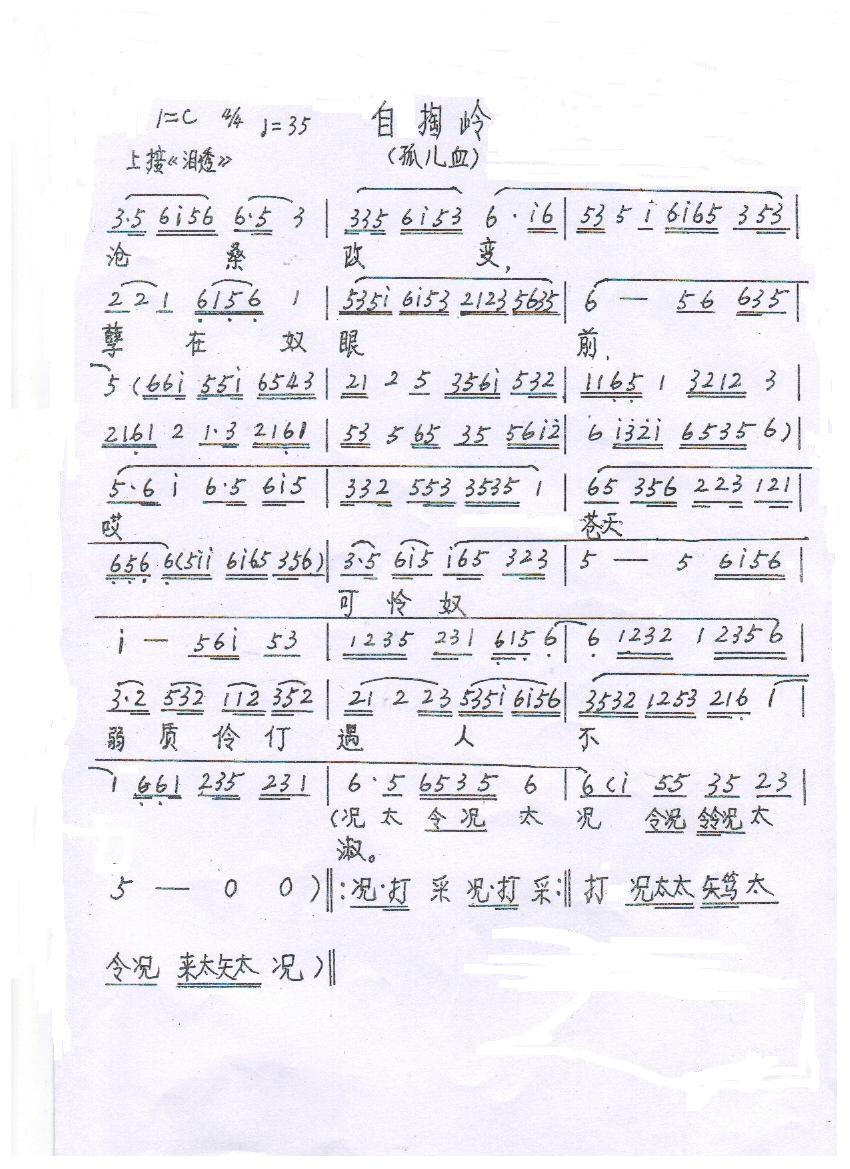 1=C 4/4 ♩=35 自掏岭
上接《泪透》 (孤儿血)
3·5 6i56 6·5 3 | 335 6i53 6 · i6 | 53 5 i 6i65 353 |
沧 桑 改 变,
2 2 1 6156 1 | 535i 6i53 2123 5635 | 6 — 56 635 |
孽 在 奴 眼 前,
5 (66i 55i 6543 | 21 2 5 356i 532 | 1165 1 3212 3 |
2161 2 1·3 2161 | 53 5 65 35 56i2 | 6 i32i 6535 6) |
5·6 i 6·5 6i5 | 332 553 3535 1 | 65 356 223 121 |
哎 苍天
656 6(5ii 6i65 356) | 3·5 6i5 i65 323 | 5 — 5 6i56 |
可 怜 奴
i — 56i 53 | 1235 231 6156 | 6 1232 1 2356 |
3·2 532 112 352 | 21 2 23 535i 6i56 | 3532 1253 216 1 |
弱 质 伶 仃 遇 人 不
1 661 235 231 | 6·5 6535 6 | 6(i 55 35 23 |
(况 太 令 况 太 况 令况 铃况 太
淑。
5 — 0 0 )‖: 况·打 采 况·打 采 :‖ 打 况太太 矢笃 太
令况 来太矢太 况 )‖